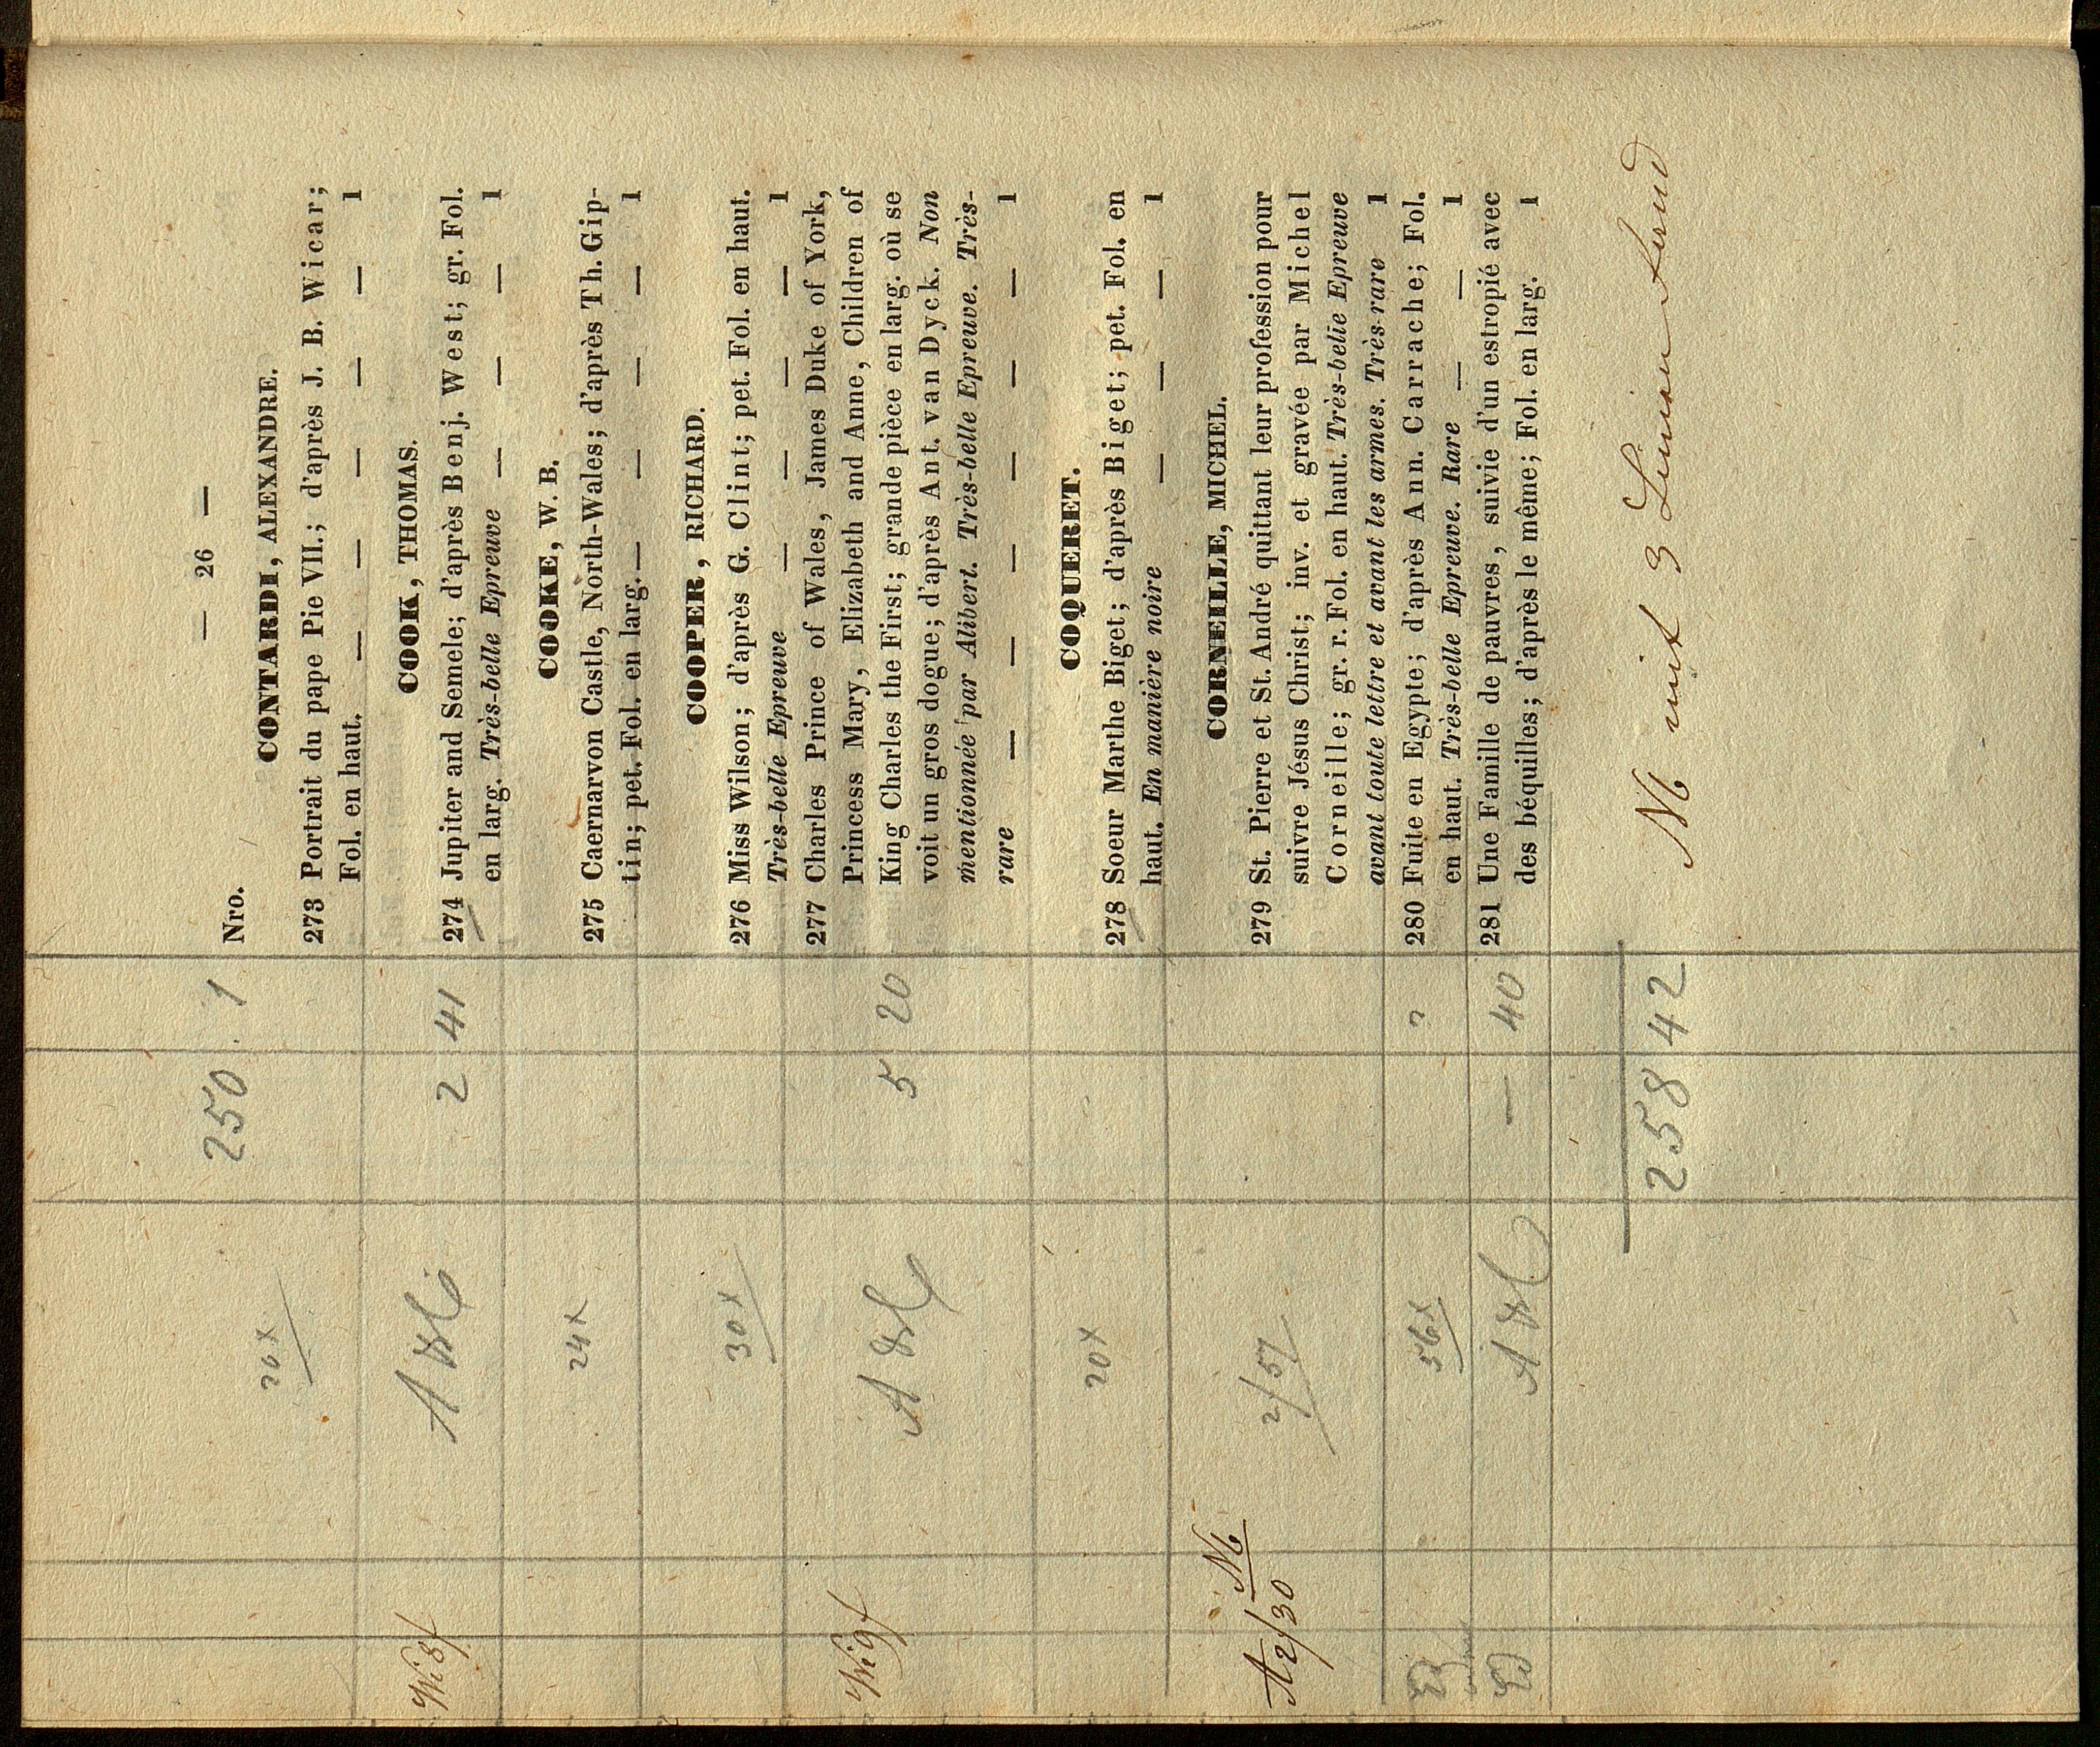 — 26 —
250 1
Nro.
CONTARDI, ALEXANDRE.
273 Portrait du pape Pie VII.; d'après J. B. Wicar;
Fol. en haut. — — — — — 1
COOK, THOMAS.
2 41
274 Jupiter and Semele; d'après Benj. West; gr. Fol.
en larg. Très-belle Epreuve — — — 1
COOKE, W. B.
24x
275 Caernarvon Castle, North-Wales; d'après Th. Gip-
tin; pet. Fol. en larg. — — — — 1
COOPER, RICHARD.
30x
276 Miss Wilson; d'après G. Clint; pet. Fol. en haut.
Très-belle Epreuve — — — — 1
277 Charles Prince of Wales, James Duke of York,
Princess Mary, Elizabeth and Anne, Children of
5 20
King Charles the First; grande pièce en larg. où se
voit un gros dogue; d'après Ant. van Dyck. Non
mentionnée par Alibert. Très-belle Epreuve. Très-
rare — — — — — — 1
COQUERET.
20x
278 Soeur Marthe Biget; d'après Biget; pet. Fol. en
haut. En manière noire — — — 1
CORNEILLE, MICHEL.
2/57
279 St. Pierre et St. André quittant leur profession pour
suivre Jésus Christ; inv. et gravée par Michel
Corneille; gr. r. Fol. en haut. Très-belle Epreuve
avant toute lettre et avant les armes. Très-rare 1
56x
280 Fuite en Egypte; d'après Ann. Carrache; Fol.
en haut. Très-belle Epreuve. Rare — — 1
— 40
281 Une Famille de pauvres, suivie d'un estropié avec
des béquilles; d'après le même; Fol. en larg. 1
258 42